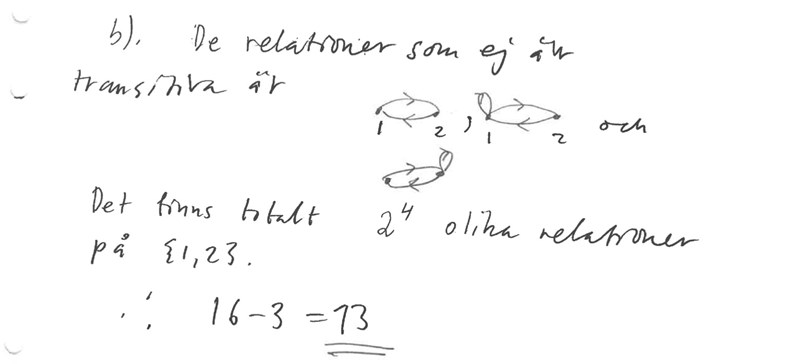 b). De relationer som ej är
transitiva är
1 2 , 1 2 och
Det finns totalt 2⁴ olika relationer
på {1,2}.
∴ 16-3 = 13